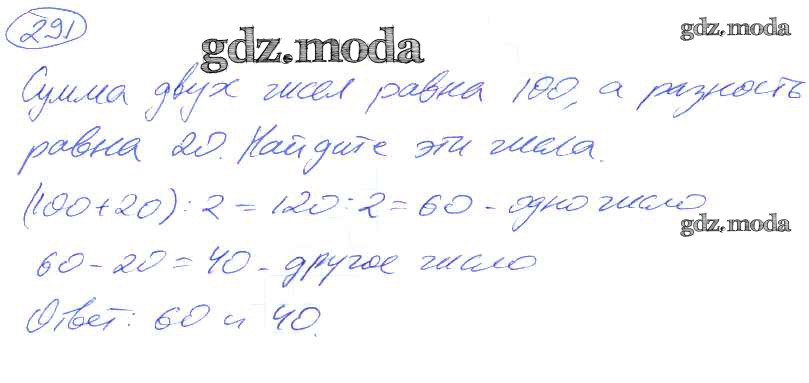 291
gdz.moda
gdz.moda
Сумма двух чисел равна 100, а разность
равна 20. Найдите эти числа.
(100+20):2=120:2=60 - одно число
gdz.moda
60-20=40 - другое число
Ответ: 60 и 40.